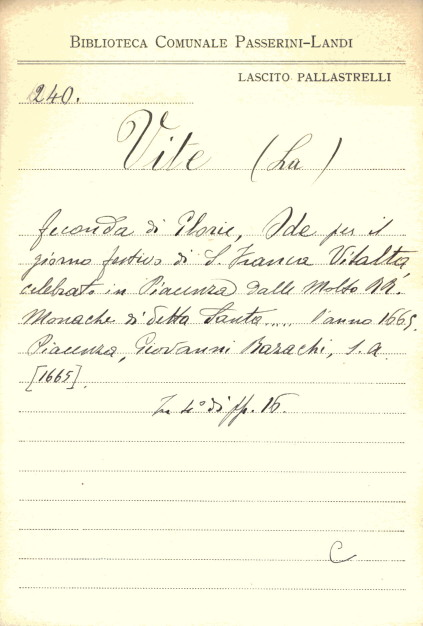 BIBLIOTECA COMUNALE PASSERINI-LANDI
LASCITO PALLASTRELLI
240.
Vite (La)
feconda di Glorie, Ode per il
giorno festivo di S. Franca Vitalta,
celebrato in Piacenza dalle Molto RR.
Monache di detta Santa.... l'anno 1665.
Piacenza, Giovanni Bazachi, s. a.
[1665].
In 4° di pp. 15.
C